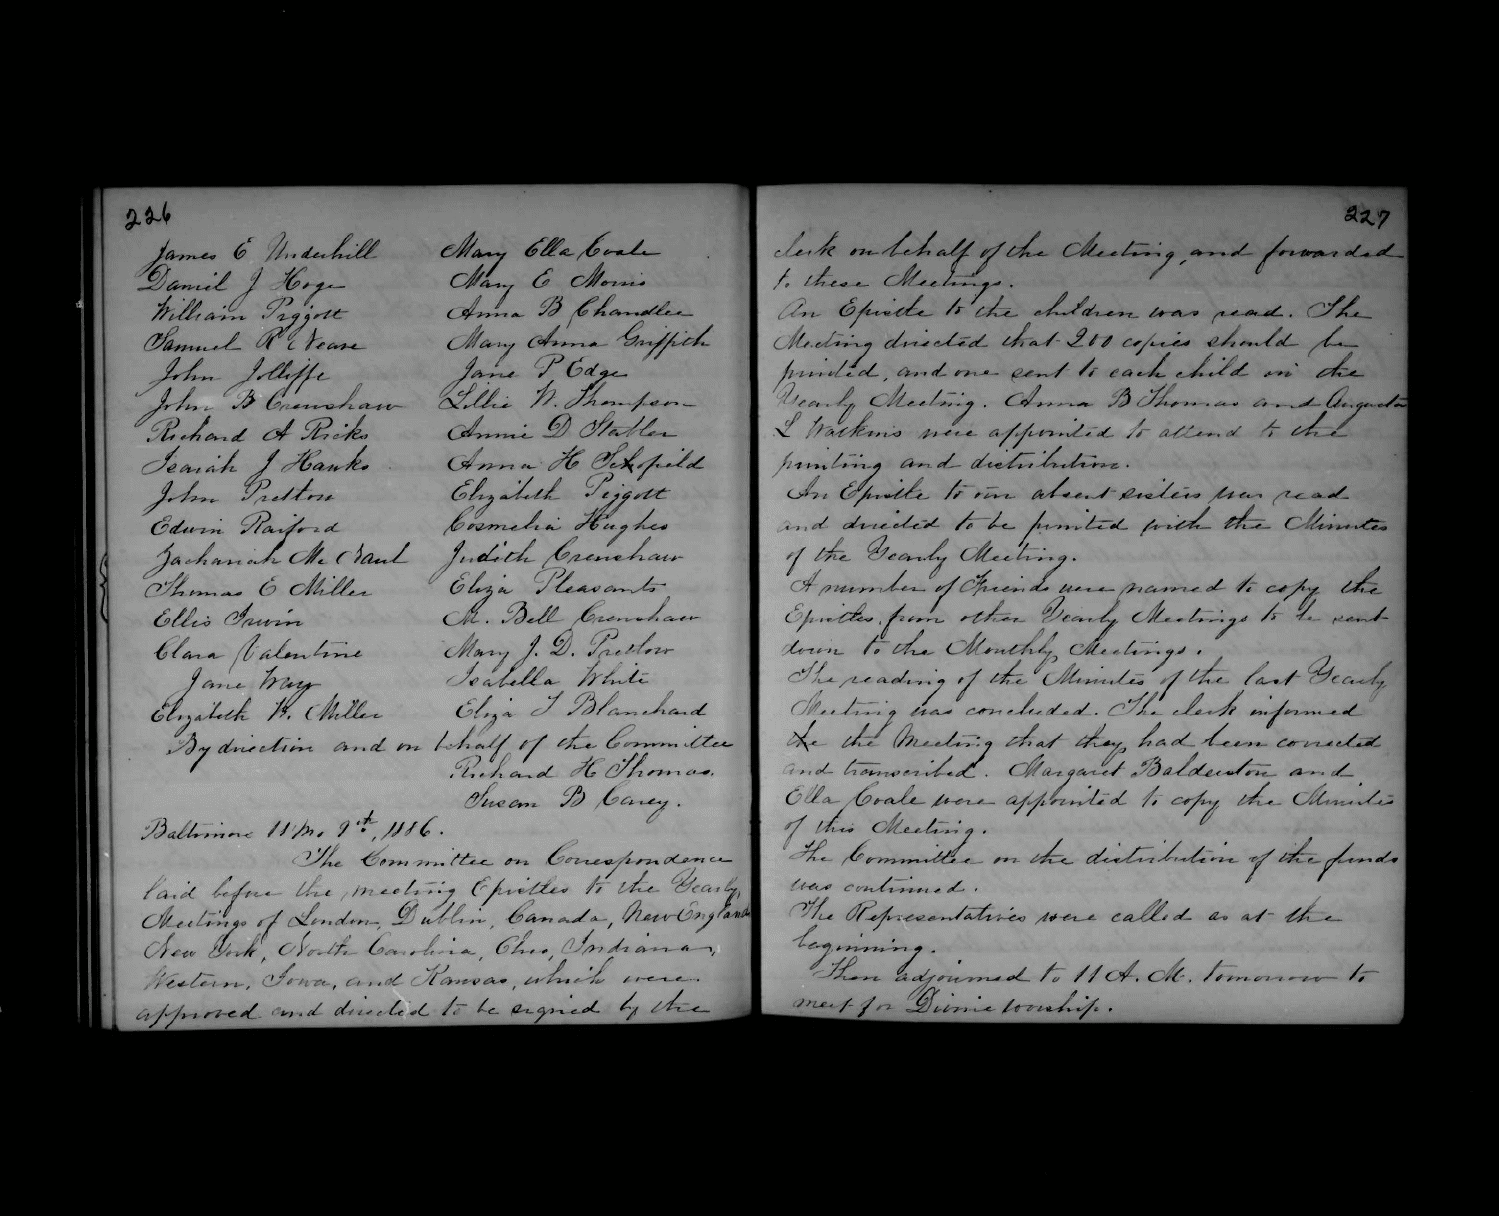 226
James E Underhill Mary Ella Coale
Daniel J Hoge Mary E Morris
William Piggott Anna B Chandlee
Samuel R Neave Mary Anna Griffith
John Jolliffe Jane P Edge
John B Crenshaw Lillie N. Thompson
Richard A Ricks Annie D Stabler
Isaiah J Hawks Anna H Schofield
John Pretlow Elizabeth Piggott
Edwin Raiford Cosmelia Hughes
Zachariah McNaul Judith Crenshaw
Thomas E Miller Eliza Pleasants
Ellis Irwin M. Bell Crenshaw
Clara Valentine Mary J. D. Pretlow
Jane Way Isabella White
Elizabeth W. Miller Eliza T Blanchard
By direction and on behalf of the Committee
Richard H Thomas.
Susan B Carey.
Baltimore 11 Mo 9th, 1886.
The Committee on Correspondence
laid before the meeting Epistles to the Yearly
Meetings of London, Dublin, Canada, New England
New York, North Carolina, Ohio, Indiana,
Western, Iowa, and Kansas, which were
approved and directed to be signed by the
227
clerk on behalf of the Meeting, and forwarded
to these Meetings.
An Epistle to the children was read. The
Meeting directed that 200 copies should be
printed, and one sent to each child in the
Yearly Meeting. Anna B Thomas and Augusta
L Watkins were appointed to attend to the
printing and distribution.
An Epistle to our absent sisters was read
and directed to be printed with the Minutes
of the Yearly Meeting.
A number of Friends were named to copy the
Epistles from other Yearly Meetings to be sent
down to the Monthly Meetings.
The reading of the Minutes of the last Yearly
Meeting was concluded. The clerk informed
the the Meeting that they had been corrected
and transcribed. Margaret Balderston and
Ella Coale were appointed to copy the Minutes
of this Meeting.
The Committee on the distribution of the funds
was continued.
The Representatives were called as at the
beginning.
Then adjourned to 11 A. M. tomorrow to
meet for Divine worship.